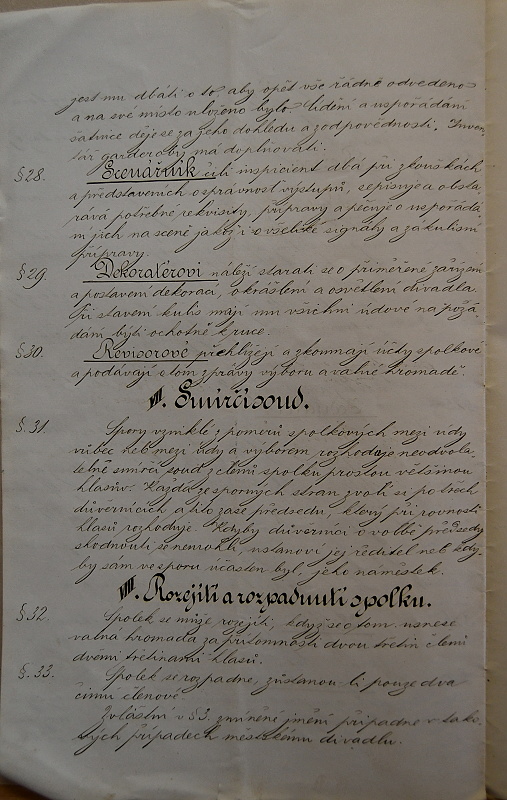 jest mu dbáti o to, aby opět vše řádně odvedeno
a na své místo uloženo bylo. Lídění a uspořádání
šatnice děje se za jeho dohledu a zodpovědnosti. Inven-
tář garderoby má doplňovati.
§ 28. Scenáristník čili inspicient dbá při zkouškách
a představeních o správnost výstupů, sepisuje a obsta-
rává potřebné rekvisity, přípravy a pečuje o uspořádá-
ní jich na scéně jakož i o všeliké signály a zákulisní
přípravy.
§ 29. Dekoratérovi náleží starati se o přiměřené zařízení
a postavení dekorací, okrášlení a osvětlení divadla.
Při stavení kulis mají mu všichni údové na požá-
dání býti ochotně k ruce.
§ 30. Revisorové přehlížejí a zkoumají účty spolkové
a podávají o tom zprávy výboru a valné hromadě.
VII. Smírčí soud.
§ 31. Spory vzniklé z poměrů spolkových mezi údy
vůbec neb mezi údy a výborem rozhoduje neodvola-
telně smírčí soud z členů spolku prostou většinou
hlasův. Každá ze sporných stran zvolí si po třech
důvěrnících a tito zase předsedu, který při rovnosti
hlasů rozhoduje. Kdyby důvěrníci o volbě předsedy
shodnouti se nemohli, ustanoví jej ředitel neb kdy-
by sám ve sporu účasten byl, jeho náměstek.
VIII. Rozejití a rozpadnutí spolku.
§ 32. Spolek se může rozejíti, když se o tom usnese
valná hromada za přítomnosti dvou třetin členů
dvěmi třetinami hlasů.
§. 33. Spolek se rozpadne, zůstanou-li pouze dva
činní členové.
Zvláštní v §3. zmíněné jmění připadne v tako-
vých případech městskému divadlu.